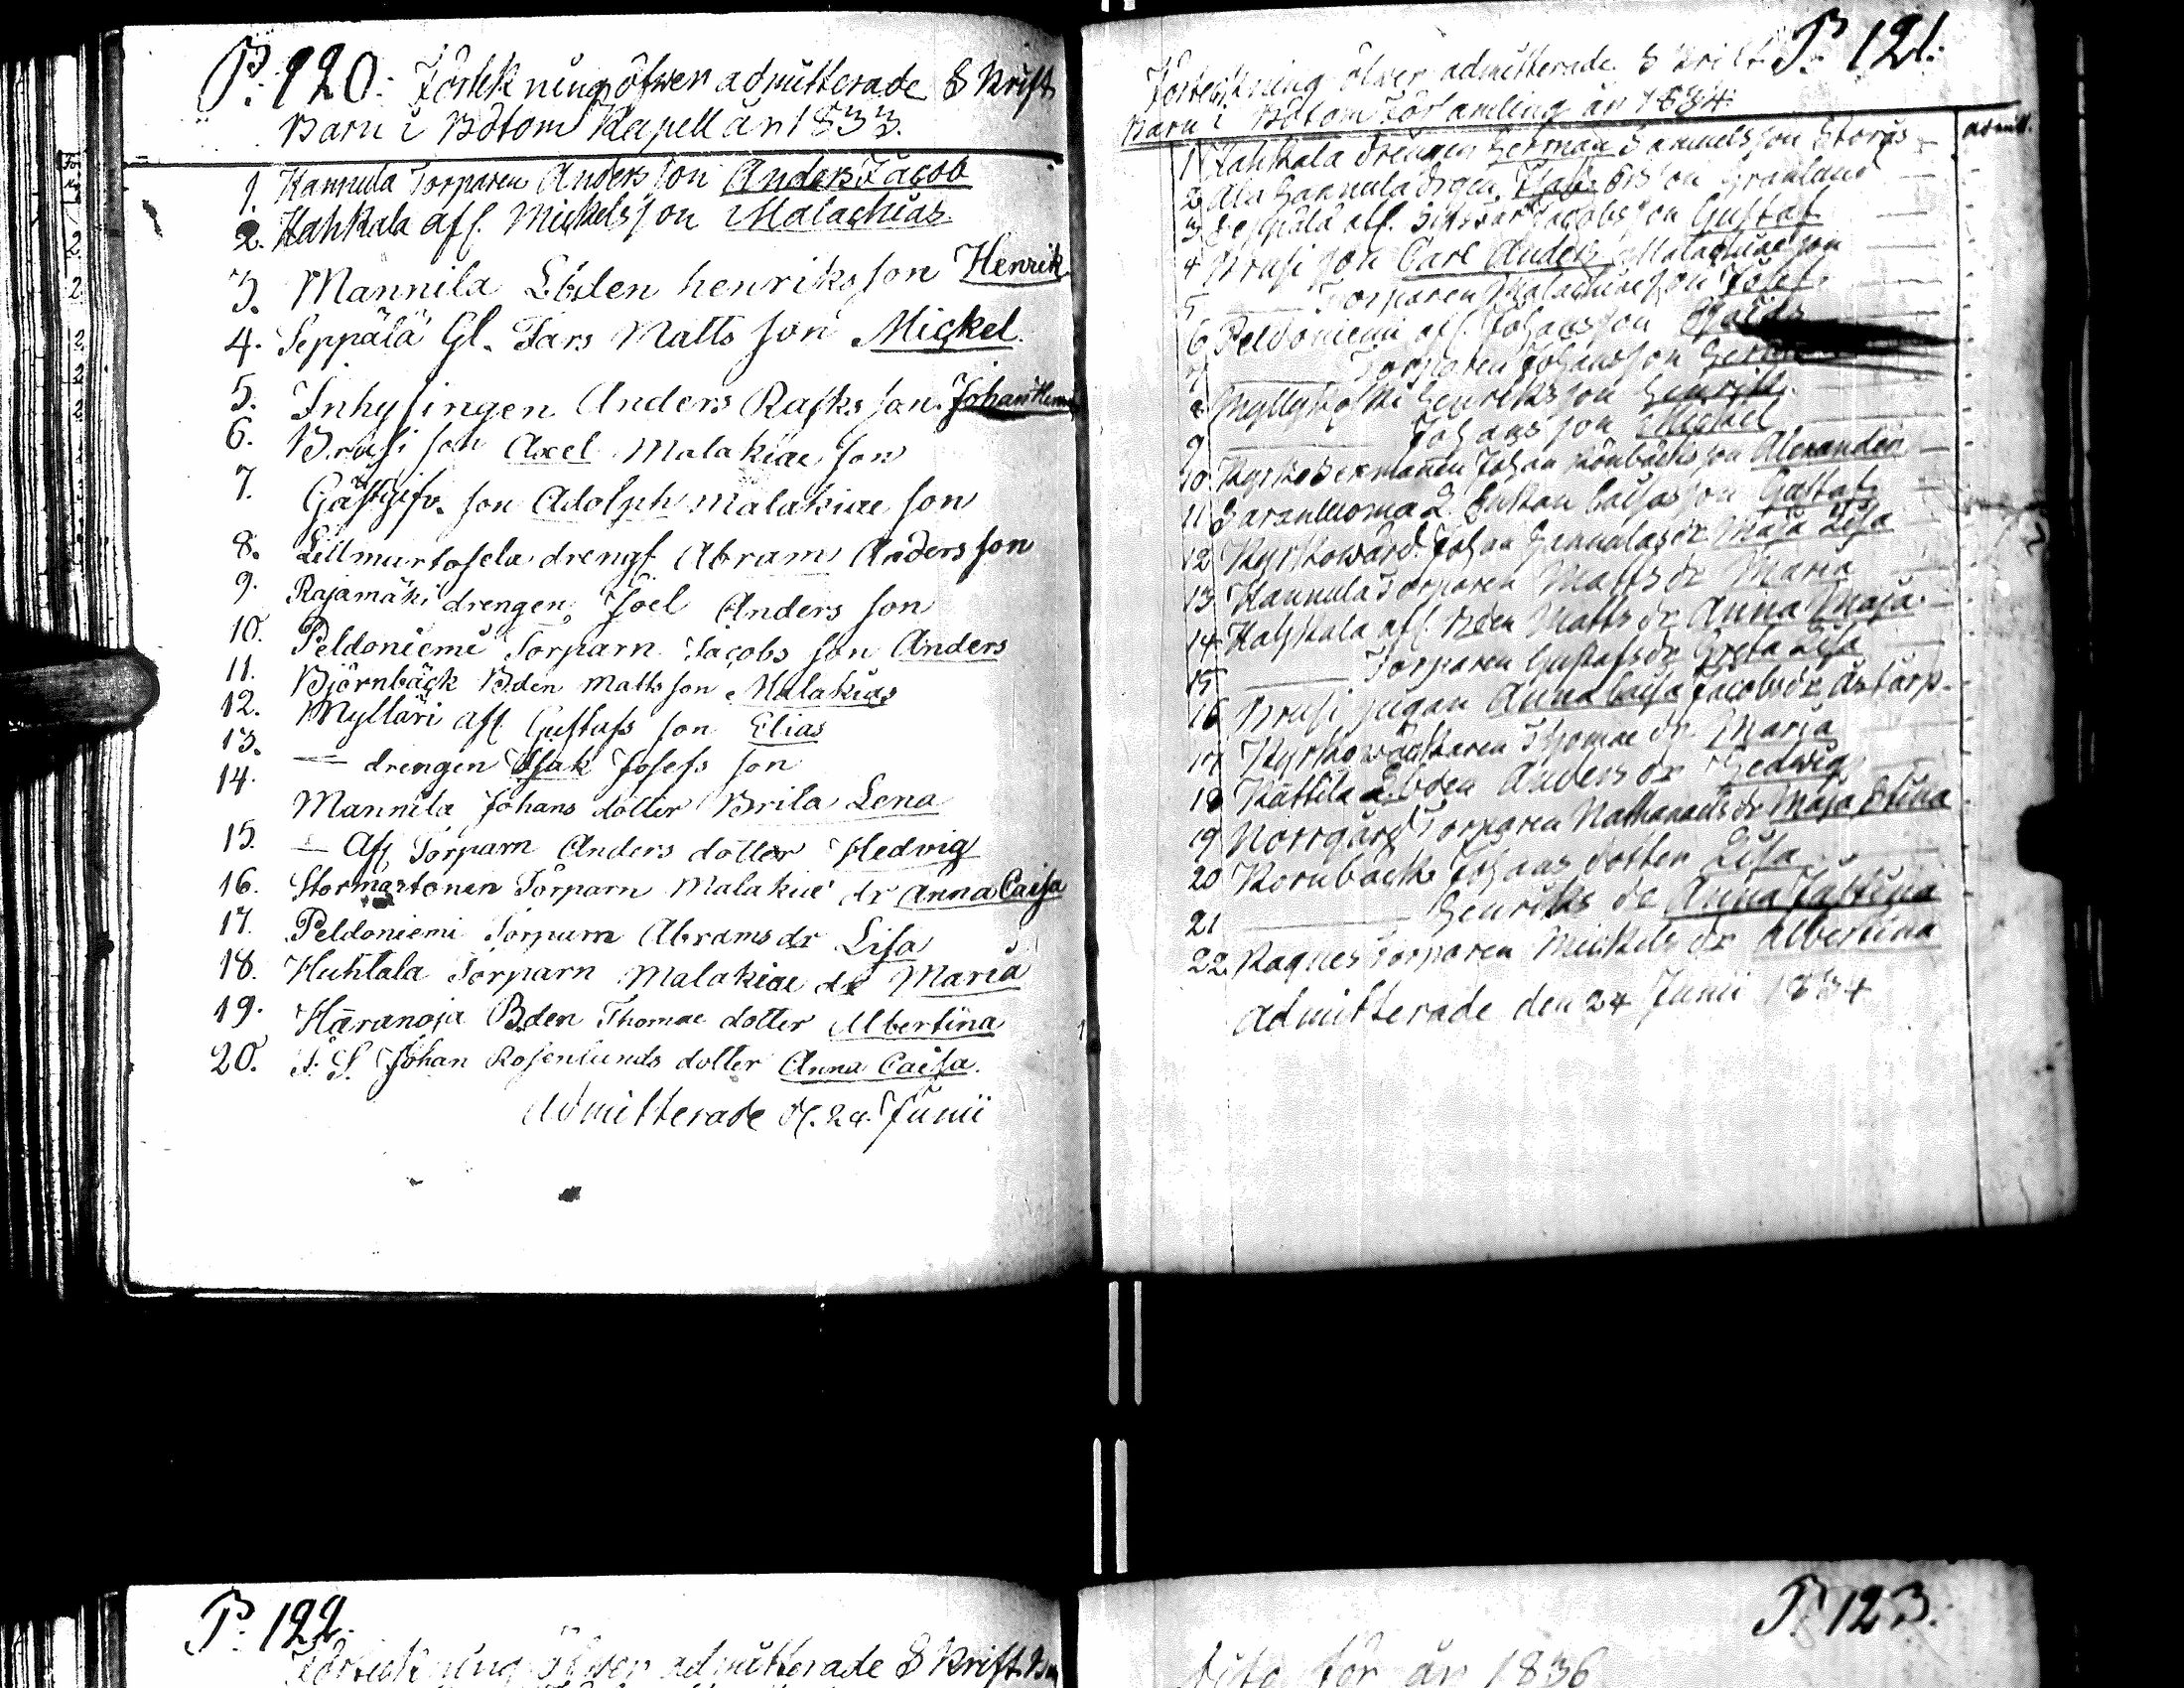 P. 120. Förtekning öfwer admitterade S Krift
Barn i Bötom Kapell år 1833.
1. Hannula Torparen Anders son Anders Jacob
2. Hahkala afl. Mickels son Malachias
3. Mannila Lbden henriks son Henrik
4. Seppälä Gl. Lars Matts son Mickel
5. Inhysingen Anders Rasks son Johan
6. Brusi son Axel Malakiae son
7. Gästgifv. son Adolph Malakiae son
8. Lillmurtosela drengs. Abram Anders son
9. Rajamäki drengen Joel Anders son
10. Peldoniemi Torparn Jacobs son Anders
11. Björnbäck Bden Matts son Malakias
12. Mylläri afl. Gustafs son Elias
13. — drengen Isak Josefs son
14. Mannila Johans dotter Brita Lena
15. — Afl. Torparn Anders dotter Hedvig
16. Stormartonen Torparn Malakiae dr Anna Caisa
17. Peldoniemi Torparn Abrams dr Lisa
18. Huhtala Torparn Malakiae dr Maria
19. Haranoja Bden Thomae dotter Albertina
20. Johan Rosenlunds dotter Anna Caisa
Admitterade d. 24 Junii
P. 121.
Förtekning öfwer admitterade S Krift
Barn i Bötom Församling år 1834.
admitt.
1 Hahkala drengen Herman Samuelsson Storås
2 Ala Hannula drgen Isak Ersson Granlund
3 Seppälä afl. Jacobs son Gustaf
4 Brusi son Carl Anders Malachiae son
5 — Torparen Malachiae son Josef
6 Peldoniemi afl. Johansson Esaias
7 — Torparen Johansson
8 Myllykoski Henriks son Henrik
9 — Johans son Mickel
10 Kyrkosexmannen Johan Rönbäcks son Alexander
11 Haranluoma L. Enkan Caisas son Gustaf
12 Kyrkowärd. Johan Hannulas dr Maja Lisa
13 Hannula Torparen Matts dr Maria
14 Hahkala afl. Bden Matts dr Anna Maja
15 — Torparen Gustafs dr Greta Lisa
16 Brusi pigan Anna Caisa Jacobs dr
17 Kyrkowäktaren Thomae dr Marja
18 Kattila Lbden Anders dr Hedwig
19 Norrgård Torparen Nathanaels dr Maja Stina
20 Kornbäck Johans dotter Lisa
21 — Henriks dr Anna
22 Ragnes Torparen Mickels dr Albertina
Admitterade den 24 Junii 1834
P. 122.
Förtekning öfwer admitterade S Krift
P. 123.
dito för år 1836